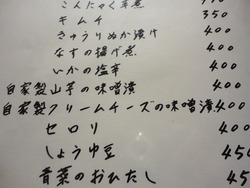 こんにゃく辛煮 350
キムチ 350
きゅうりぬか漬け 400
なすの揚げ煮 400
いかの塩辛 400
自家製山芋の味噌漬 400
自家製クリームチーズの味噌漬 400
セロリ 400
しょうゆ豆 450
青菜のおひたし 450